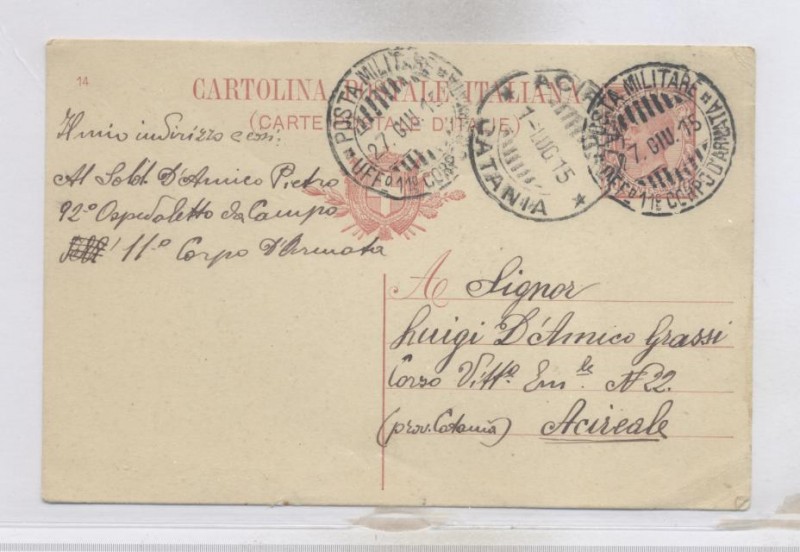 14
CARTOLINA POSTALE ITALIANA
(CARTE POSTALE D'ITALIE)
POSTA MILITARE
27. GIU. 15
UFFº 11º CORPO D'ARMATA
ACIREALE
1-LUG 15
CATANIA
POSTA MILITARE
27. GIU. 15
UFFº 11º CORPO D'ARMATA
Il mio indirizzo è così:
Al Sold. D'Amico Pietro
92º Ospedaletto da Campo
11º Corpo D'Armata
A Signor
Luigi D'Amico Grassi
Corso Vittº Emle N 22.
(prov. Catania) Acireale